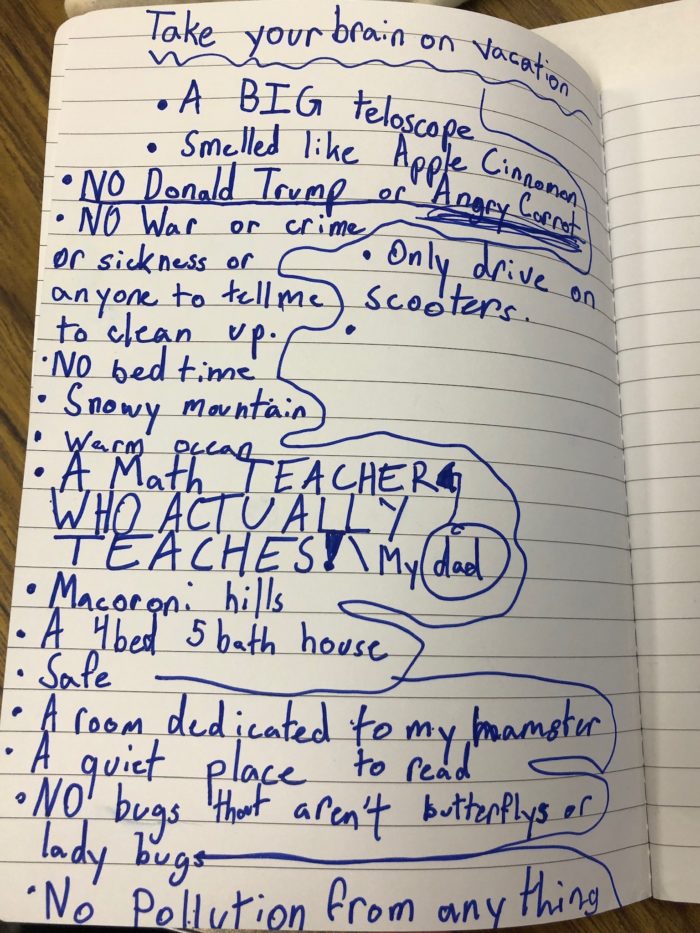 Take your brain on vacation
• A BIG teloscope
• Smelled like Apple Cinnomen
• NO Donald Trump or Angry Carrot
• NO War or crime
or sickness or
anyone to tell me
to clean up.
• Only drive on
scooters.
•
• NO bed time
• Snowy mountain
• warm ocean
• A Math TEACHER
WHO ACTUALLY
TEACHES! \ My dad
• Macoroni hills
• A 4 bed 5 bath house
• Safe
• A room dedicated to my hamster
• A quiet place to read
• NO bugs that aren't butterflys or
lady bugs
• No Pollution from any thing